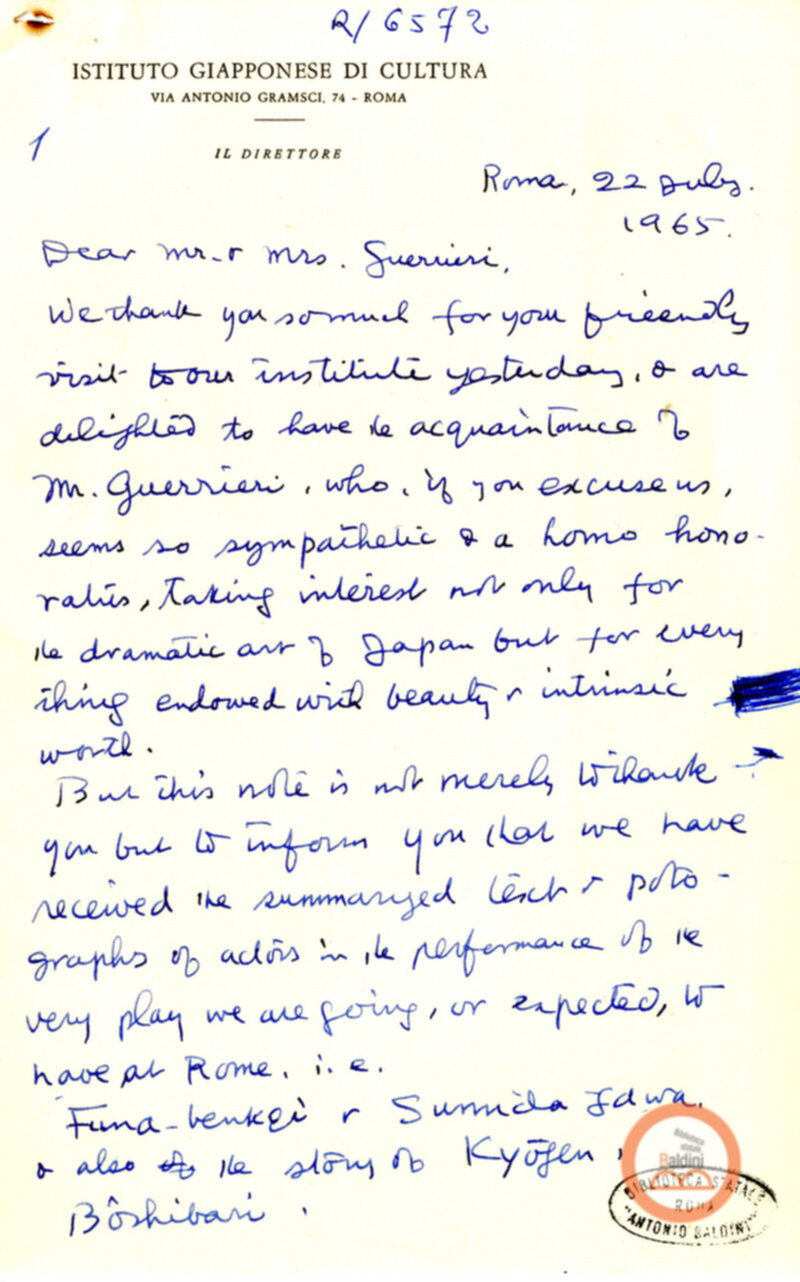 R/6572
ISTITUTO GIAPPONESE DI CULTURA
VIA ANTONIO GRAMSCI, 74 - ROMA
1
IL DIRETTORE
Roma, 22 July.
1965.
Dear Mr. & Mrs. Guerrieri,
We thank you so much for your friendly
visit to our institute yesterday, & are
delighted to have the acquaintance of
Mr. Guerrieri, who, if you excuse us,
seems so sympathetic & a homo hono-
ratus, taking interest not only for
the dramatic art of Japan but for every
thing endowed with beauty & intrinsic
worth.
But this note is not merely to thank
you but to inform you that we have
received the summarized text & poto-
graphs of actors in the performance of the
very play we are going, or expected, to
have at Rome. i.e.
Funa-benkei & Sumida
& also the story of Kyōgen,
Bôshibari.
Biblioteca
statale
Baldini
BIBLIOTECA STATALE
ROMA
"ANTONIO BALDINI"